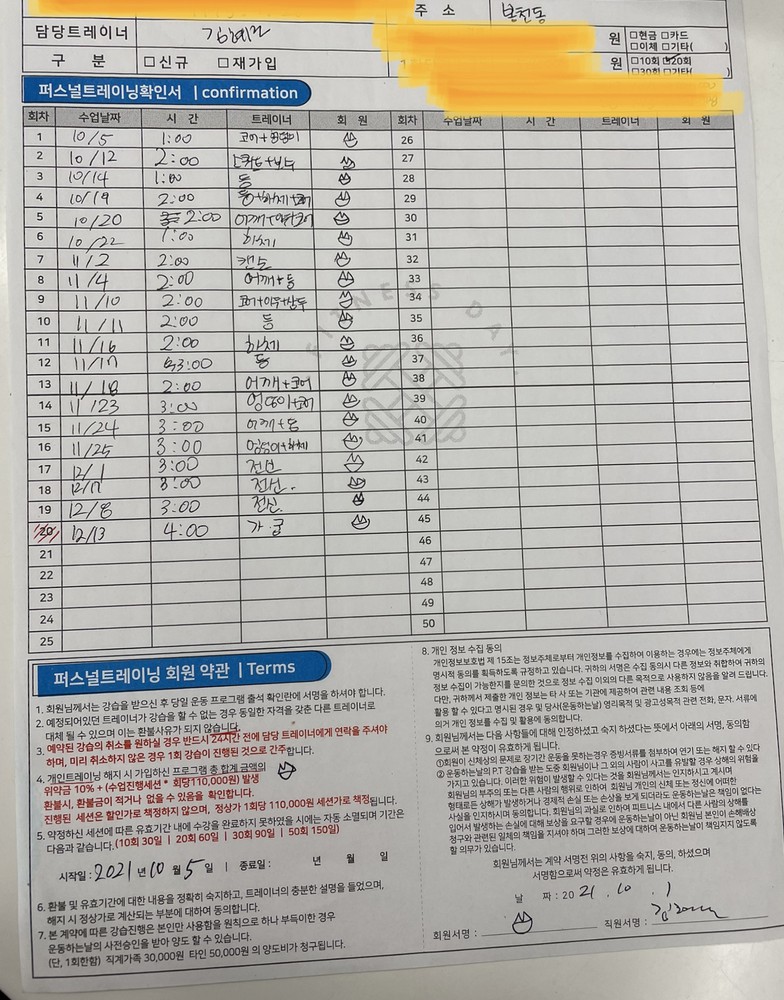 주 소 본천동
담당트레이너
원 □현금 □카드
□이체 □기타( )
구 분 □신규 □재가입
원 □10회 ☑20회
□30회 □기타(
퍼스널트레이닝확인서 | confirmation
회차 수업날짜 시 간 트레이너 회 원 회차 수업날짜 시 간 트레이너 회 원
1 10/5 1:00 코어+엉덩이 26
2 10/12 2:00 27
3 10/14 1:00 등 28
4 10/19 2:00 등+하체+코어 29
5 10/20 2:00 30
6 10/22 1:00 하체 31
7 11/2 2:00 32
8 11/4 2:00 어깨+등 33
9 11/10 2:00 코어+이두+삼두 34
10 11/11 2:00 등 35
11 11/16 2:00 하체 36
12 11/17 3:00 등 37
13 11/18 2:00 어깨+코어 38
14 11/23 3:00 엉덩이+코어 39
15 11/24 3:00 어깨+등 40
16 11/25 3:00 엉덩이+하체 41
17 12/1 3:00 전신 42
18 12/7 3:00 전신. 43
19 12/8 3:00 전신 44
20 12/13 4:00 45
21 46
22 47
23 48
24 49
25 50
FITNESS DAY.
퍼스널트레이닝 회원 약관 | Terms
1. 회원님께서는 강습을 받으신 후 당일 운동 프로그램 출석 확인란에 서명을 하셔야 합니다.
2. 예정되어있던 트레이너가 강습을 할 수 없는 경우 동일한 자격을 갖춘 다른 트레이너로
대체 될 수 있으며 이는 환불사유가 되지 않습니다.
3. 예약된 강습의 취소를 원하실 경우 반드시 24시간 전에 담당 트레이너에게 연락을 주셔야
하며, 미리 취소하지 않은 경우 1회 강습이 진행된 것으로 간주합니다.
4. 개인트레이닝 해지 시 가입하신 프로그램 총 합계 금액의
위약금 10% + (수업진행세션 * 회당110,000) 발생
환불시, 환불금이 적거나 없을 수 있음을 확인합니다.
진행된 세션은 할인가로 책정하지 않으며, 정상가 1회당 110,000원 세션가로 책정됩니다.
5. 약정하신 세션에 따른 유효기간 내에 수강을 완료하지 못하였을 시에는 자동 소멸되며 기간은
다음과 같습니다.(10회 30일 | 20회 60일 | 30회 90일 | 50회 150일)
시작일 : 2021 년 10 월 5 일 | 종료일 : 년 월 일
6. 환불 및 유효기간에 대한 내용을 정확히 숙지하고, 트레이너의 충분한 설명을 들었으며,
해지 시 정상가로 계산되는 부분에 대하여 동의합니다.
7. 본 계약에 따른 강습진행은 본인만 사용함을 원칙으로 하나 부득이한 경우
운동하는날의 사전승인을 받아 양도 할 수 있습니다.
(단, 1회한함) 직계가족 30,000원 타인 50,000원 의 양도비가 청구됩니다.
8. 개인 정보 수집 동의
개인정보보호법 제 15조는 정보주체로부터 개인정보를 수집하여 이용하는 경우에는 정보주체에게
명시적 동의를 획득하도록 규정하고 있습니다. 귀하의 서명은 수집 동의시 다른 정보와 취합하여 귀하의
정보 수집이 가능한지를 문의한 것으로 정보 수집 이외의 다른 목적으로 사용하지 않음을 알려 드립니다.
다만, 귀하께서 제출한 개인 정보는 타 사 또는 기관에 제공하여 관련 내용 조회 등에
활용 할 수 있다고 명시된 경우 및 당사(운동하는날) 영리목적 및 광고성목적 관련 전화, 문자, 서류에
의거 개인 정보를 수집 및 활용에 동의합니다.
9. 회원님께서는 다음 사항들에 대해 인정하셨고 숙지 하셨다는 뜻에서 아래의 서명, 동의함
으로써 본 약정이 유효하게 됩니다.
①회원이 신체상의 문제로 장기간 운동을 못하는경우 증빙서류를 첨부하여 연기 또는 해지 할 수 있다
② 운동하는날의 P.T 강습을 받는 도중 회원님이나 그 외의 사람이 사고를 유발할 경우 상해의 위험을
가지고 있습니다. 이러한 위험이 발생할 수 있다는 것을 회원님께서는 인지하시고 계시며
회원님의 부주의 또는 다른 사람의 행위로 인하여 회원님 개인의 신체 또는 정신에 어떠한
형태로든 상해가 발생하거나 경제적 손실 또는 손상을 보게 되더라도 운동하는날은 책임이 없다는
사실을 인지하시며 동의합니다. 회원님의 과실로 인하여 피트니스 내에서 다른 사람의 상해를
입어서 발생하는 손실에 대해 보상을 요구할 경우에 운동하는날이 아닌 회원님 본인이 손해배상
청구와 관련된 일체의 책임을 지셔야 하며 그러한 보상에 대하여 운동하는날이 책임지지 않도록
할 의무가 있습니다.
회원님께서는 계약 서명전 위의 사항을 숙지, 동의, 하셨으며
서명함으로써 약정은 유효하게 됩니다.
날 짜 : 20 21 . 10 . 1
회원서명 : 직원서명 :